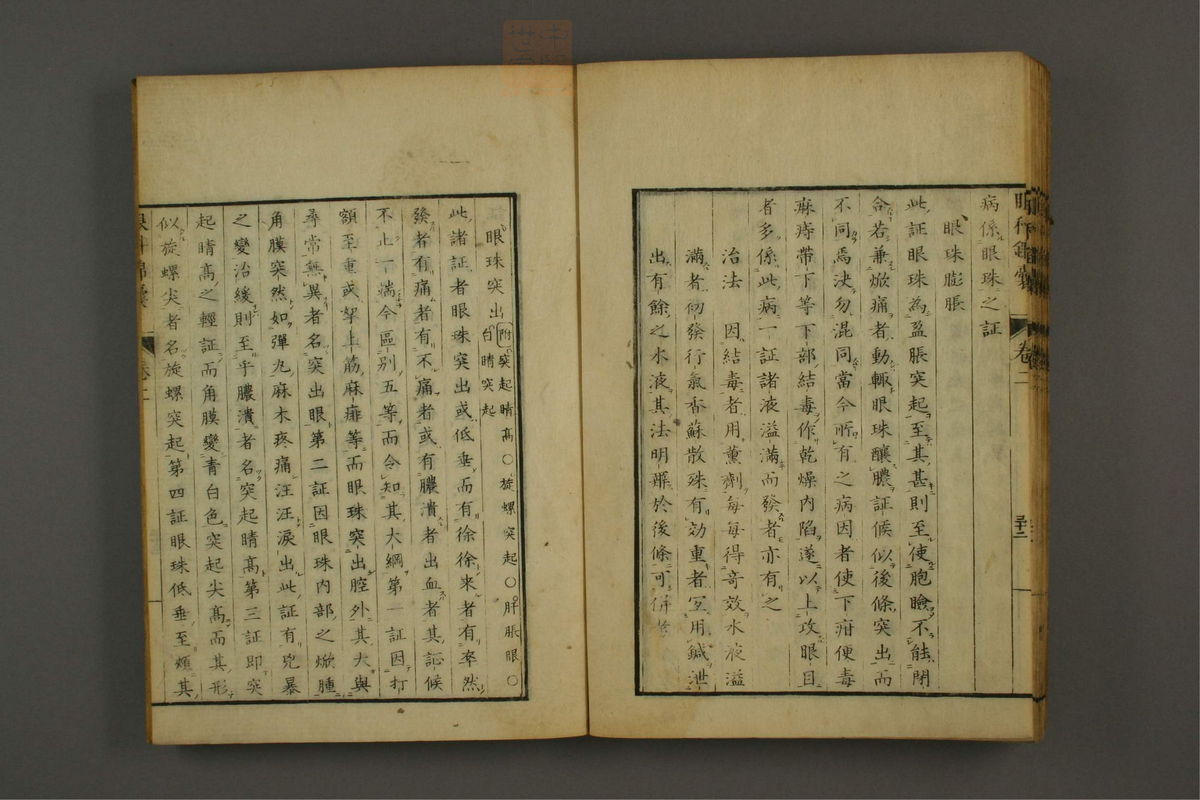 眼科錦囊 卷二
病係眼珠之証
眼珠膨脹
此証眼珠為盈脹突起至其甚則至使胞瞼不能閉
合若兼焮痛者動輙眼珠釀膿証候似後條突出而
不同焉决勿混同當今所有之病因者使下疳便毒
麻痔帶下等下部結毒作乾燥内陷遂以上攻眼目
者多係此病一証諸液溢滿而發者亦有之
治法 因結毒者用薰劑每每得竒效水液溢
滿者仞發行氣香蘇散殊有効重者宜用鍼泄
出有餘之水液其法明辨於後條可併
眼珠突出 附 突起睛髙○旋螺突起○肝脹眼○
白睛突起
此諸証者眼珠突出或低垂而有徐徐来者有卒然
發者有痛者有不痛者或有膿潰者出血者其証候
不止一端今區别五等而令知其大綱第一証因打
額至重或挐上筋麻痱等而眼珠突出腔外其大與
尋常無異者名突出眼第二証因眼珠内部之焮腫
角膜突然如彈丸麻木疼痛汪汪淚出此証有兇暴
之變治緩則至乎膿潰者名突起睛髙第三証即突
起睛髙之輕証而角膜變青白色突起尖髙而其形
似旋螺尖者名旋螺突起第四証眼珠低垂至頰其
眼科錦囊 卷二